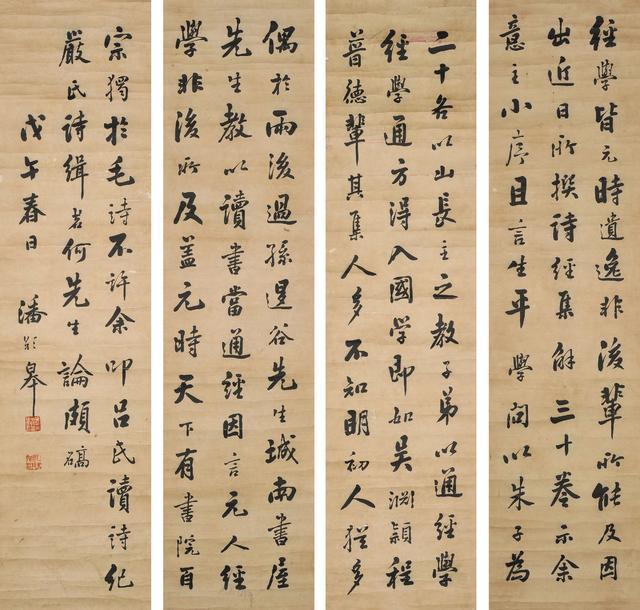 經學皆元時遺逸非後輩所能及因
出近日所撰詩經集解三十卷示余
意主小序且言生平學問以朱子為
二十各以山長主之教子弟以通經學
經學通方得入國學即如吳淵潁程
普德輩其集人多不知明初人猶多
偶於雨後過孫退谷先生城南書屋
先生教以讀書當通經因言元人經
學非後所及蓋元時天下有書院百
宗獨於毛詩不許余叩呂氏讀詩紀
嚴氏詩緝若何先生論頗確
戊午春日 潘齡皋